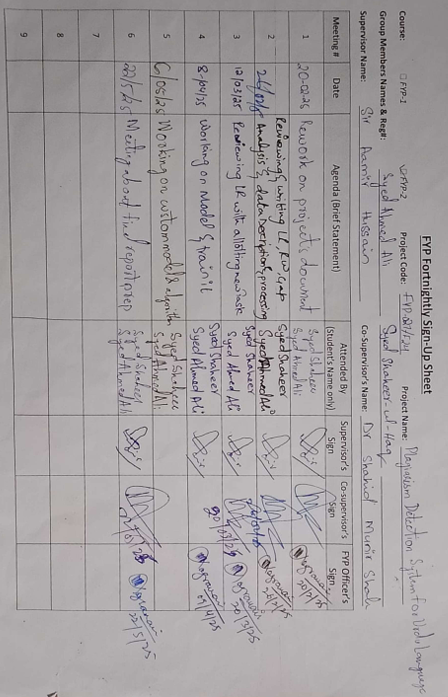 FYP Fortnightly Sign-Up Sheet
Course: □ FYP-1 ☑ FYP-2 Project Code: FYP-271/F24 Project Name: Plagiarism Detection System for Urdu Language
Group Members Names & Reg#: Syed Ahmed Ali Syed Shaheer-ul-Haq
Supervisor Name: Sir Aamir Hussain Co-Supervisor's Name: Dr Shahid Munir Shah
Meeting # Date Agenda (Brief Statement) Attended By (Student's Name only) Supervisor's Sign Co-supervisor's Sign FYP Officer's Sign
1 20-02-25 Rework on projects document Syed Shaheer
Syed Ahmed Ali 20/2/25
2 Reviewing & writing LR, RW, Gap Syed Shaheer
Analysis & data Description & processing Syed Ahmed Ali 26/2/25
3 12/03/25 Reviewing LR with allotting new task Syed Shaheer
Syed Ahmed Ali 20/3/25 20/3/25
4 8-04/25 Working on Model & train it Syed Shaheer
Syed Ahmed Ali
5 6/05/25 Working on custom model & algorithm Syed Shaheer
Syed Ahmed Ali
6 22/5/25 Meeting about final report prep Syed Shaheer
Syed Ahmed Ali 22/5/25
7
8
9